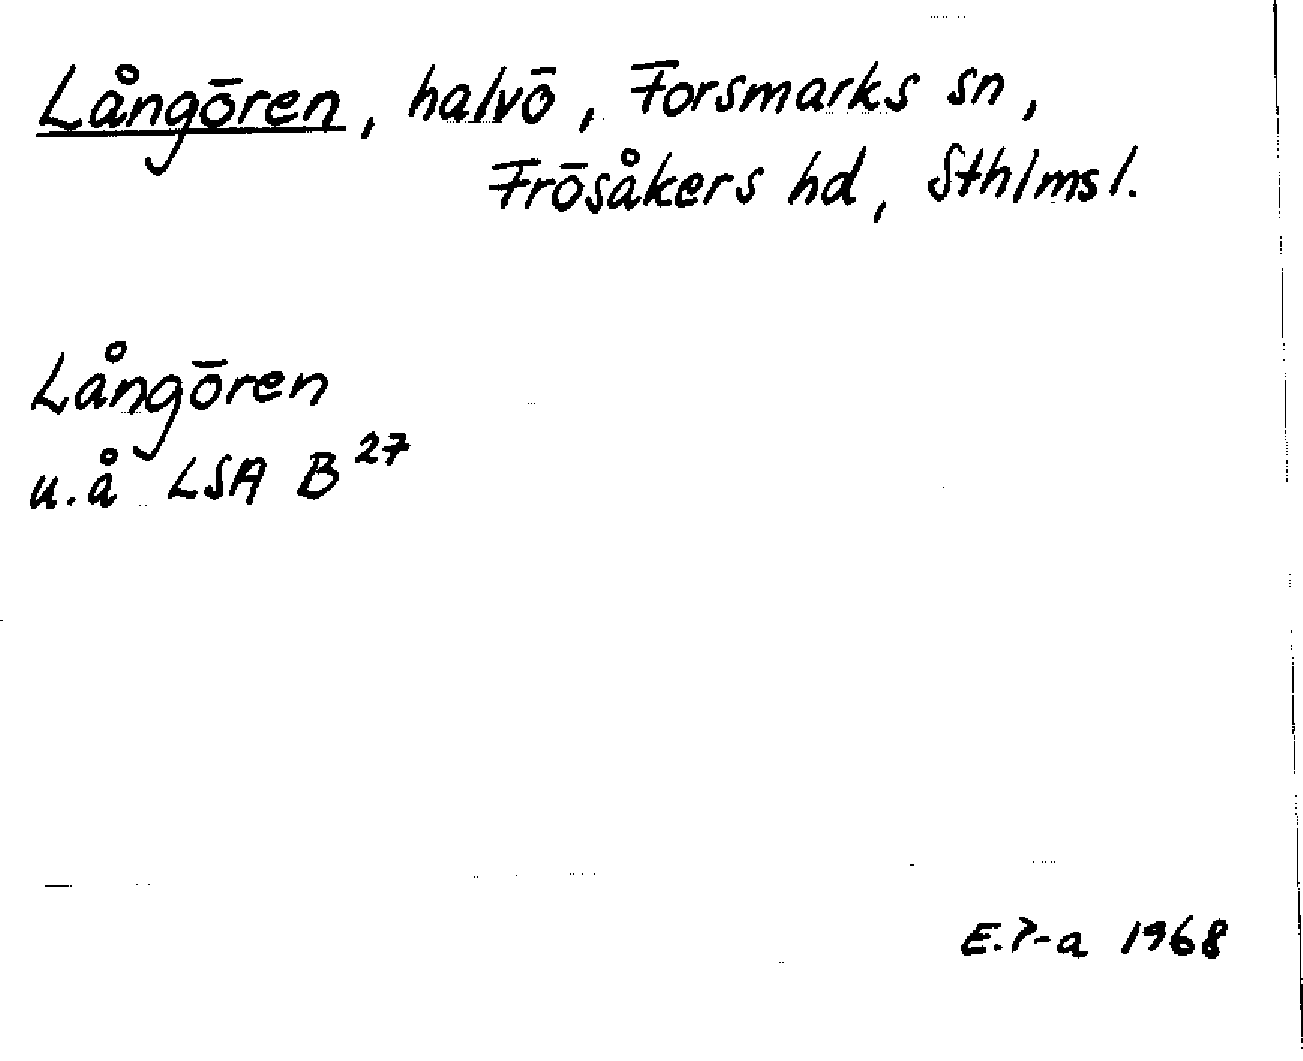 Långören, halvö, Forsmarks sn,
Frösåkers hd, Sthlms l.
Långören
u.å LSA B 27
E.P-a 1968